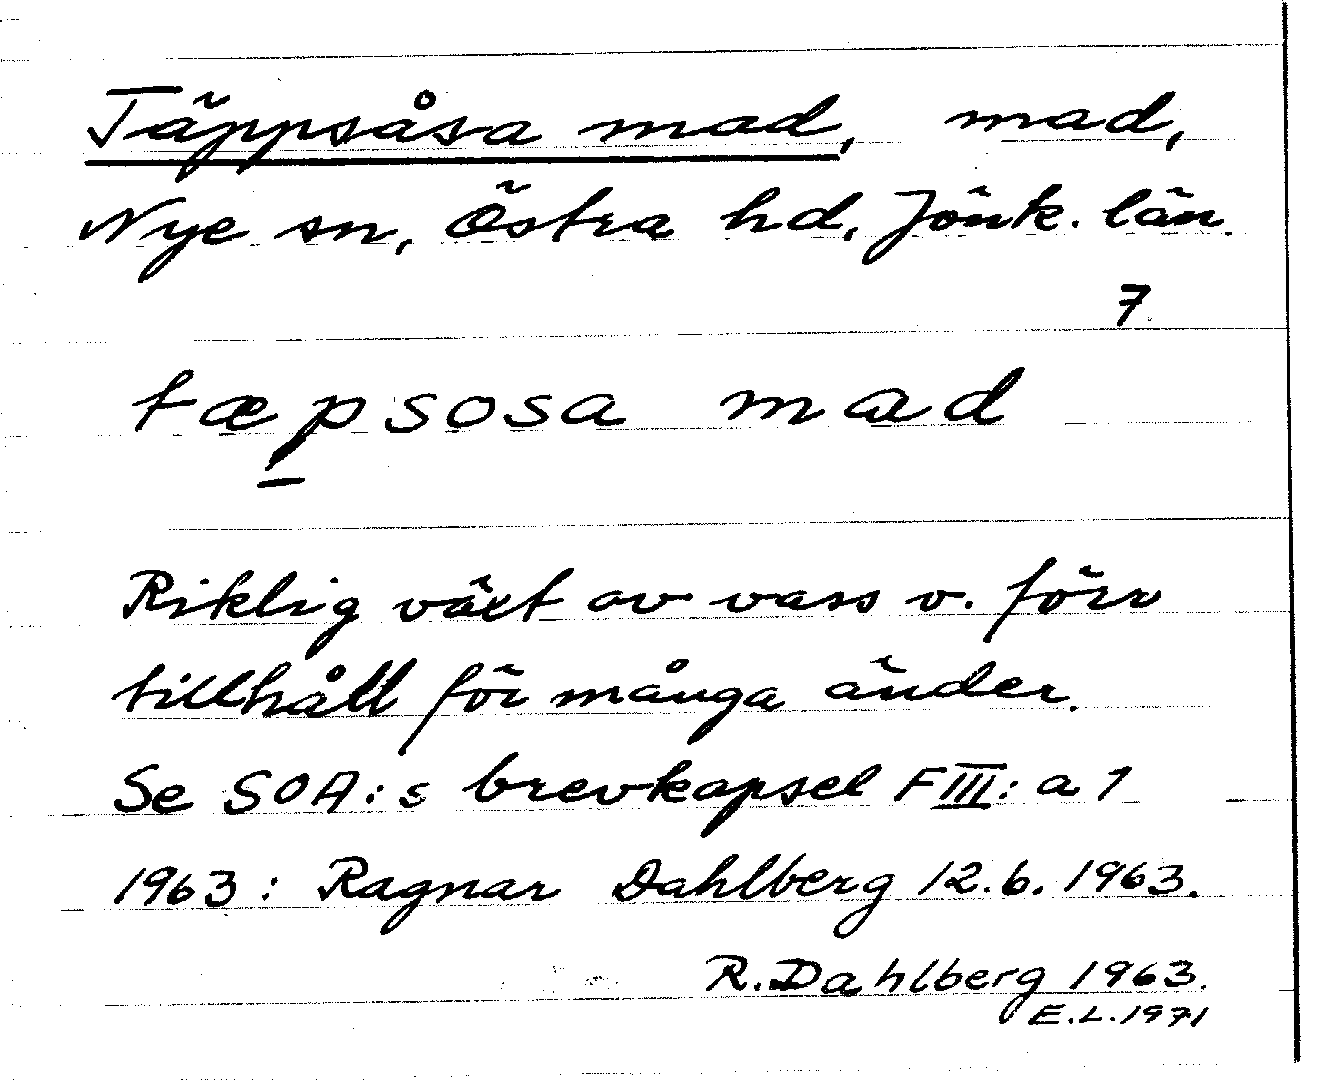 Täppsåsa mad, mad,
Nye sn, Östra hd, Jönk. län.
7
tæpsosa mad
Riklig växt av vass o. förr
tillhåll för många änder.
Se SOA:s brevkapsel FIII: a 1
1963: Ragnar Dahlberg 12.6.1963.
R. Dahlberg 1963.
E.L. 1971